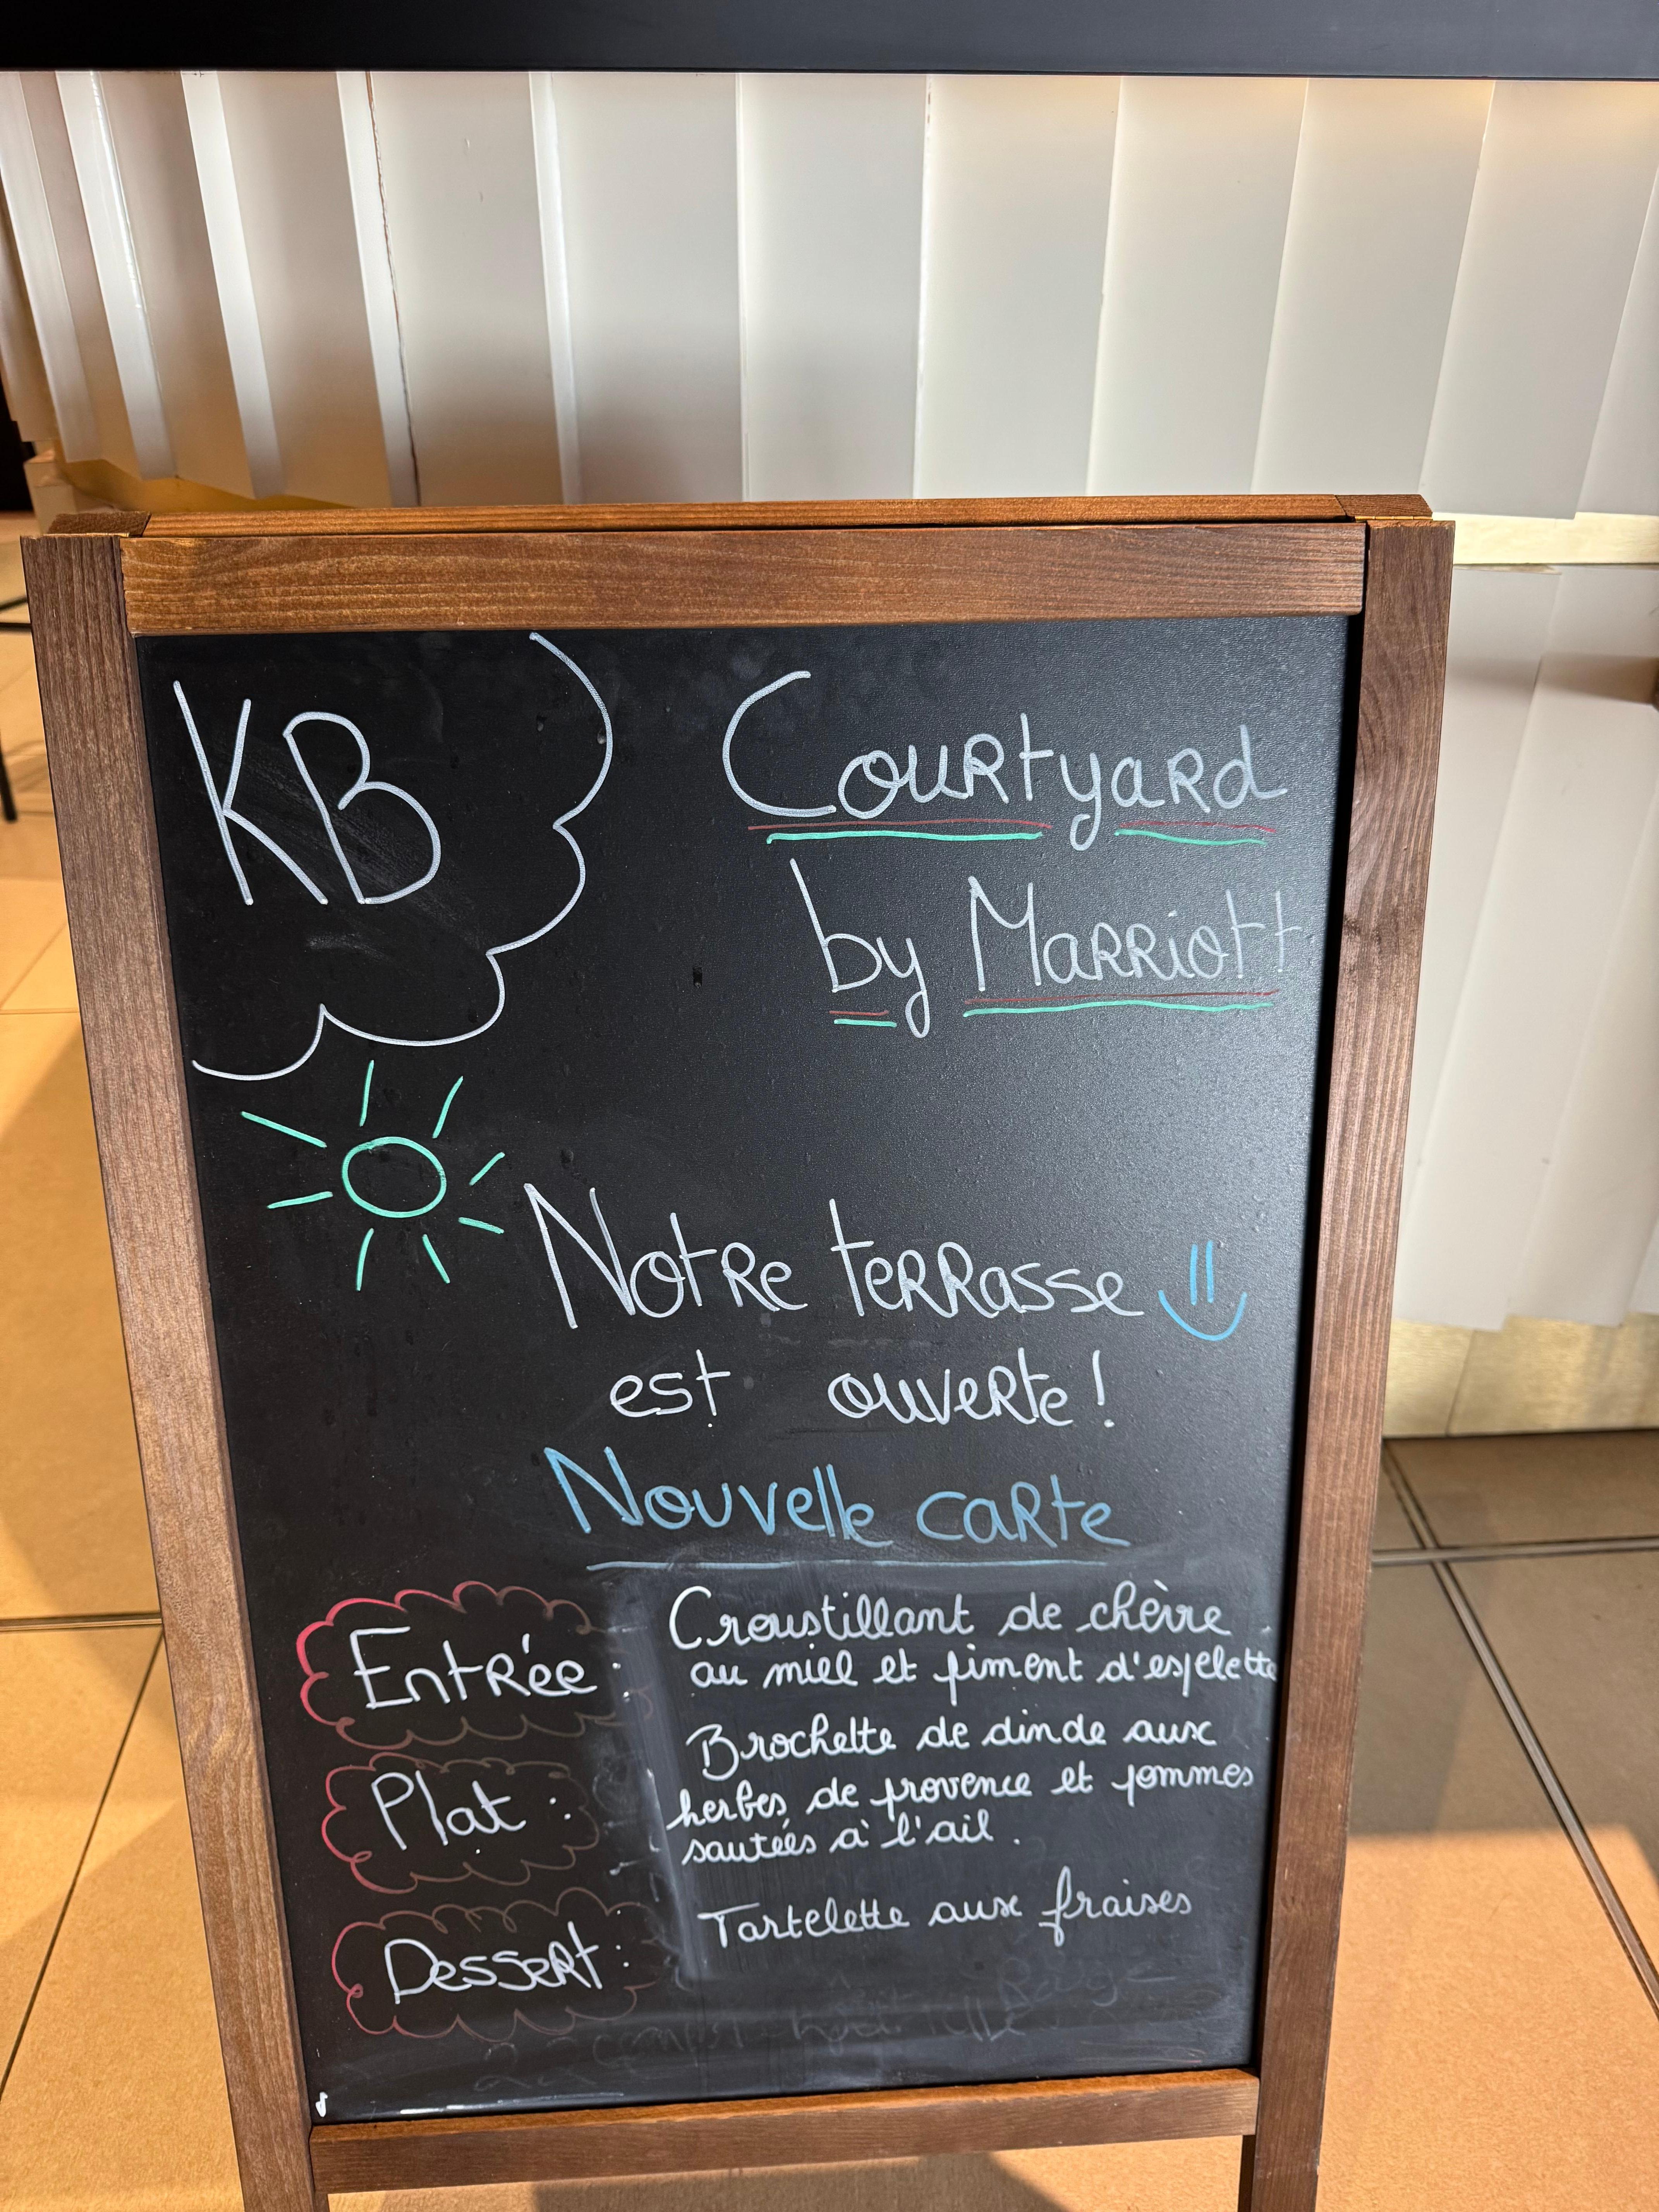 KB
Courtyard
by Marriott
Notre terrasse
est ouverte!
Nouvelle carte
Entrée :
Croustillant de chèvre
au miel et piment d'espelette
Plat :
Brochette de dinde aux
herbes de provence et pommes
sautées à l'ail.
Dessert :
Tartelette aux fraises